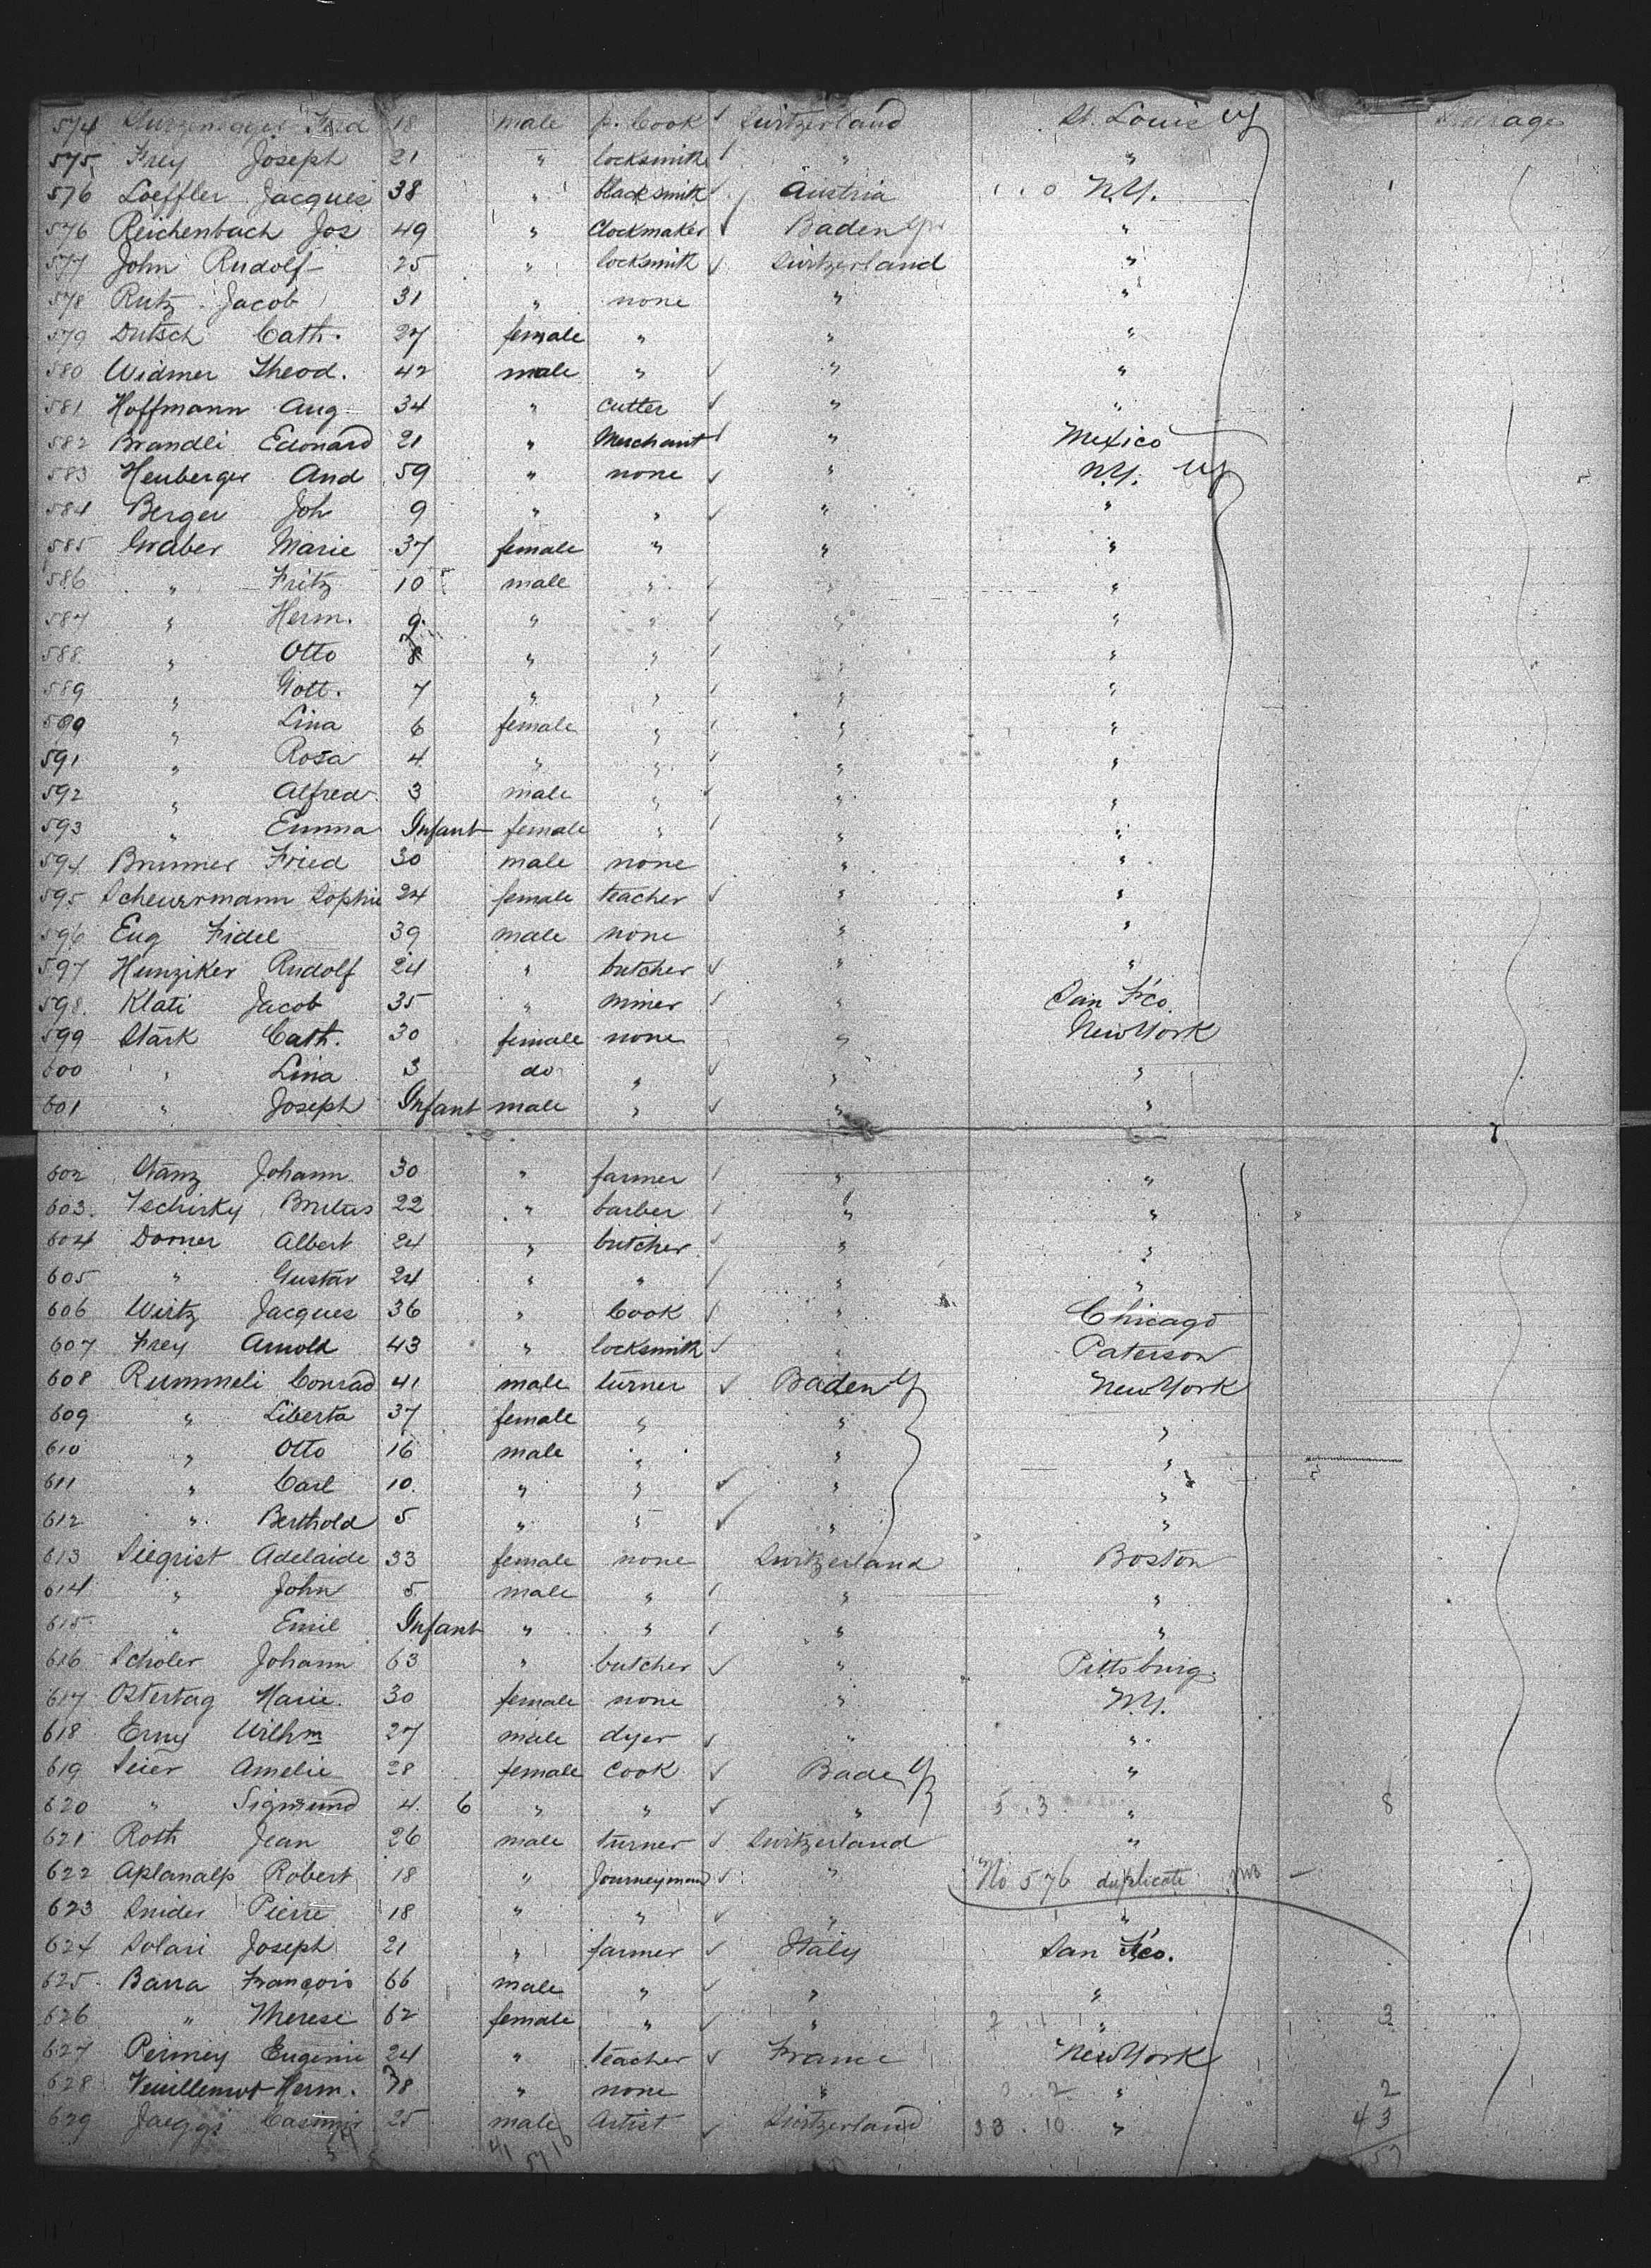 574 Sturzenegger Fred 18 male p. Cook Switzerland St. Louis Steerage
575 Frey Joseph 21 " locksmith " "
576 Loeffler Jacques 38 " blacksmith Austria 1 . 0 N.Y. 1
576 Reichenbach Jos 49 " Clockmaker Baden "
577 John Rudolf 25 " locksmith Switzerland "
578 Rutz Jacob 31 " none " "
579 Dutsch Cath. 27 female " " "
580 Widmer Theod. 42 male " " "
581 Hoffmann Aug 34 " cutter " "
582 Brandli Edouard 21 " Merchant " Mexico
583 Heuberger And 59 " none " N.Y.
584 Berger Joh 9 " " " "
585 Graber Marie 37 female " " "
586 " Fritz 10 male " " "
587 " Herm. 9 " " " "
588 " Otto 8 " " " "
589 " Gott. 7 " " " "
590 " Lina 6 female " " "
591 " Rosa 4 " " " "
592 " Alfred 3 male " " "
593 " Emma Infant female " " "
594 Brunner Fried 30 male none " "
595 Scheurmann Sophie 24 female teacher " "
596 Eug Fidel 39 male none " "
597 Hunziker Rudolf 24 " butcher " "
598 Klati Jacob 35 " miner " San F'co
599 Stark Cath. 30 female none " New York
600 " Lina 3 do " " "
601 " Joseph Infant male " " "
602 Stanz Johann 30 " farmer " "
603 Tschirky Brutus 22 " barber " "
604 Dorner Albert 24 " butcher " "
605 " Gustav 24 " " " "
606 Wirtz Jacques 36 " Cook " Chicago
607 Frey Arnold 43 " locksmith " Paterson
608 Rummeli Conrad 41 male turner Baden New York
609 " Liberta 37 female " " "
610 " Otto 16 male " " "
611 " Carl 10 " " " "
612 " Berthold 5 " " " "
613 Siegrist Adelaide 33 female none Switzerland Boston
614 " John 5 male " " "
615 " Emil Infant " " " "
616 Scholer Johann 63 " butcher " Pittsburg
617 Ostertag Marie 30 female none " N.Y.
618 Erny Wilhm 27 male dyer " "
619 Seier Amelie 28 female Cook Bade "
620 " Sigmund 4 6 " " " 5 . 3 " 8
621 Roth Jean 26 male turner Switzerland "
622 Aplanalp Robert 18 " Journeyman " No 576 duplicate
623 Snider Pierre 18 " " " "
624 Solari Joseph 21 " farmer Italy San F'co.
625 Barra François 66 male " " "
626 " Therese 62 female " " 2 . 1 " 3
627 Perincy Eugenie 24 " teacher France New York
628 Vuillemot Herm. 78 " none " 0 . 2 " 2
629 Jaeggi Casimir 25 male Artist Switzerland 33 . 10 " 43
41 57 16 57